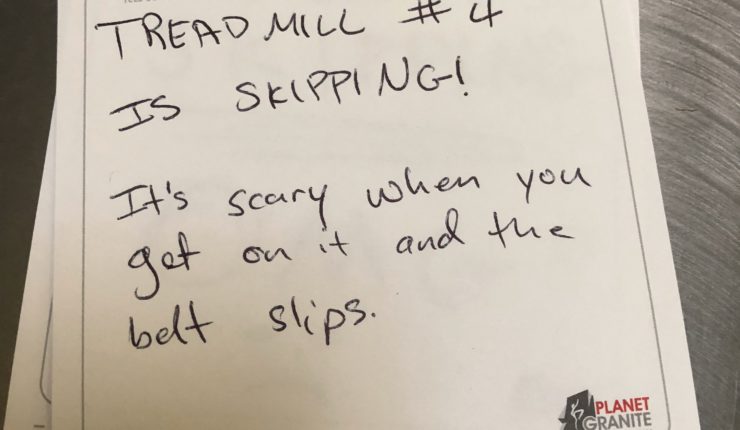 TREADMILL #4
IS SKIPPING!
It's scary when you
get on it and the
belt slips.
PLANET
GRANITE